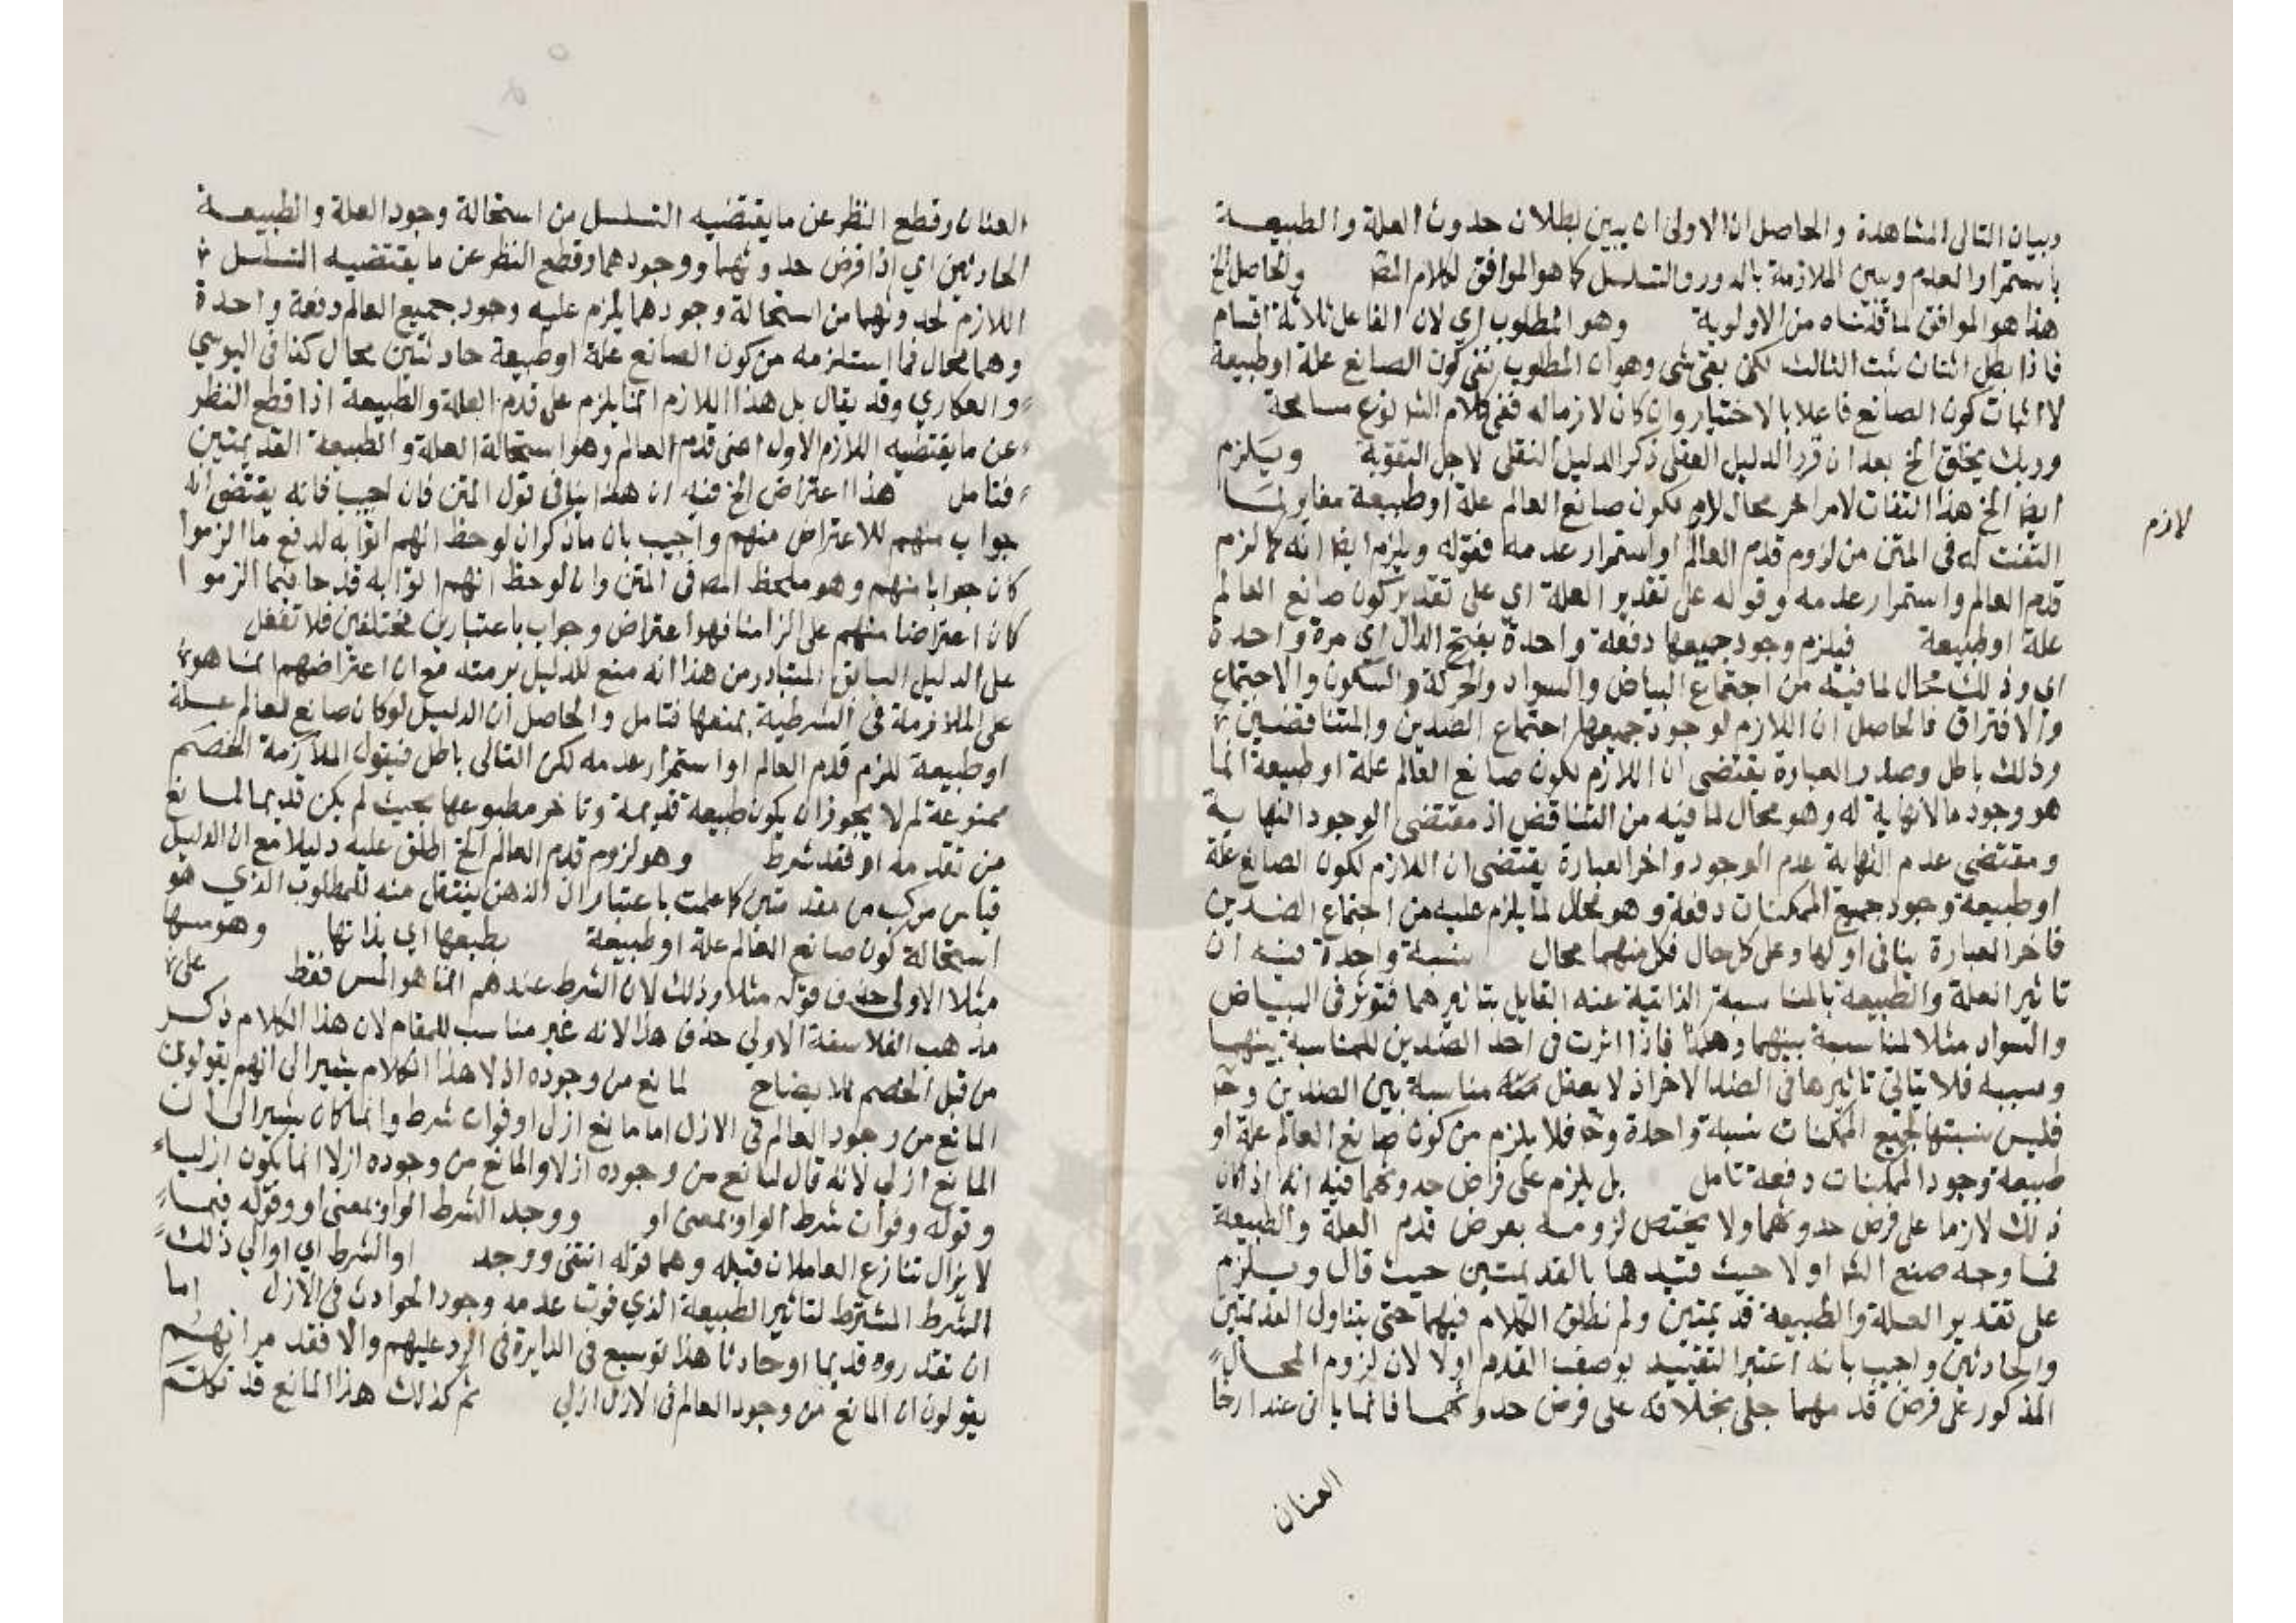 وبيان التالى المشاهدة والحاصل ان الاولى ان يبين بطلان حدوث العلة والطبيعـــة
باستمرار العدم ويبين الملازمة بالدور والتسلسل كما هو الموافق لكلام المصـ والحاصل الخ
هذا هو الموافق لما قدمناه من الاولوية وهو المطلوب اي لان الفاعل ثلاثة اقسام
فاذا بطل اثنان ثبت الثالث لكن بقى شى وهو ان المطلوب نفى كون الصانع علة او طبيعة
لا اثبات كون الصانع فاعلا بالاختيار وان كان لازما له ففى كلام الشـ نوع مسامحة
وربك يخلق الخ بعد ان قرر الدليل العقلى ذكر الدليل النقلى لاجل التقوية ويلزم
ايضا الخ هذا التفات لامر اخر محال لازم لكون صانع العالم علة او طبيعة مغاير لمـا
التفت له فى المتن من لزوم قدم العالم او استمرار عدمه فقوله ويلزم ايضا انه كما لزم
قدم العالم واستمرار عدمه وقوله على تقدير العلة اي على تقدير كون صانع العالم
علة او طبيعة فيلزم وجود جميعها دفعة واحدة بفتح الدال اى مرة واحدة
اى وذلك محال لما فيه من اجتماع البياض والسواد والحركة والسكون والاجتماع
والافتراق فالحاصل ان اللازم لوجود جميعها اجتماع الضدين والمتناقضين
وذلك باطل وصدر العبارة يقتضى ان اللازم لكون صانع العالم علة او طبيعة انما
هو وجود ما لا نهاية له وهو محال لما فيه من التناقض اذ مقتضى الوجود النهاية
ومقتضى عدم النهاية عدم الوجود واخر العبارة يقتضى ان اللازم لكون الصانع علة
او طبيعة وجود جميع الممكنات دفعة وهو محال لما يلزم عليه من اجتماع الضدين
فاخر العبارة ينافى اولها وعلى كل حال فكل منهما محال نسبة واحدة فيه ان
تاثير العلة والطبيعة بالمناسبة الذاتية عند القايل بتاثيرهما فتوثر فى البياض
والسواد مثلا لمناسبة بينهما وهكذا فاذا اثرت فى احد الضدين للمناسبة بينهـا
وسببه فلا يتاتى تاثيرها فى الضد الاخر اذ لا يعقل مناسبة بين الضدين وحـ
فليس نسبتها لجميع الممكنات نسبة واحدة وحـ فلا يلزم من كون صانع العالم علة او
طبيعة وجود الممكنات دفعة تامل بل يلزم على فرض حدوثهما فيه انه اذا كان
ذلك لازما على فرض حدوثهما ولا يختص لزومـه بفرض قدم العلة والطبيعة
فما وجه صنع الشـ اولا حيث قيدها بالقديمتين حيث قال ويلزم
على تقدير العلة والطبيعة قديمتين ولم نطلق الكلام فيهما حتى يتناول القديمتين
والحادثين واجيب بانه اعتبر التقييد بوصف القدم اولا لان لزوم المحال
المذكور على فرض قدمهما جلى بخلافه على فرض حدوثهما فانما ياتى عند ارخا
العنان
لازم
العنان وقطع النظر عن ما يقتضيه التسلسل من استحالة وجود العلة والطبيعـــة
الحادثين اي اذا فرض حدوثهما ووجودهما وقطع النظر عن ما يقتضيه التسلسل
اللازم لحدوثهما من استحالة وجودهما يلزم عليه وجود جميع العالم دفعة واحدة
وهما محال فما استلزمه من كون الصانع علة او طبيعة حادثتين محال كذا فى اليوسي
والعكاري وقد يقال بل هذا اللازم انما يلزم على قدم العلة والطبيعة اذا قطع النظر
عن ما يقتضيه اللازم الاول اعنى قدم العالم وهو استحالة العلة والطبيعة القديمتين
فتامل هذا اعتراض الخ فيه ان هذا ينافى قول المتن فان اجيب فانه يقتضى انه
جواب منهم للاعتراض منهم واجيب بان ما ذكر ان لوحظ انهم اتوا به لدفع ما الزموا
كان جوابا منهم وهو ملحظ المصـ فى المتن وان لوحظ انهم اتوا به قدحا فيما الزموا
كان اعتراضا منهم على الزامنا فهو اعتراض وجواب باعتبارين مختلفين فلا تغفل
على الدليل السابق المتبادر من هذا انه منع للدليل برمته مع ان اعتراضهم انما هو
على الملازمة فى الشرطية بمنعها فتامل والحاصل ان الدليل لو كان صانع العالم علــة
او طبيعة للزم قدم العالم او استمرار عدمه لكن التالى باطل فيقول الملازمة الخصم
ممنوعة لم لا يجوز ان يكون طبيعة قديمة وتاخر مطبوعها بحيث لم يكن قديما لمانع
من تقدمه او فقد شرط وهو لزوم قدم العالم الخ اطلق عليه دليلا مع ان الدليل
قياس مركب من مقدمتين كما علمت باعتبار ان الذهن ينتقل منه للمطلوب الذي هو
استحالة كون صانع العالم علة او طبيعة بطبعها اي بذاتها وهو مسها
مثلا الاولى حذف قوله مثلا وذلك لان الشرط عندهم انما هو المس فقط على
مذهب الفلاسفة الاولى حذف هذا لانه غير مناسب للمقام لان هذا الكلام ذكـر
من قبل الخصم للايضاح لمانع من وجوده ازلا هذا الكلام يشير الى انهم يقولون
المانع من وجود العالم فى الازل اما مانع ازلى او فوات شرط وانما كان يشير الى ان
المانع ازلي لانه قال لمانع من وجوده ازلا والمانع من وجوده ازلا انما يكون ازليـا
وقوله وفوات شرط الواو بمعنى او ووجد الشرط الواو بمعنى او وقوله فيمـا
لا يزال تنازع العاملان قبله وهما قوله انتفى ووجد او الشرط اي او الي ذلك
الشرط المشترط لتاثير الطبيعة الذي فوت عدمه وجود الحوادث فى الازل اما
ان تقدروه قديما او حادثا هذا توسيع فى الدايرة فى الرد عليهم والا فقد مر انهـم
يقولون ان المانع من وجود العالم فى الازل ازلي ثم كذلك هذا المانع قد